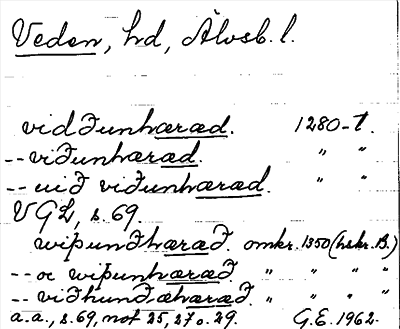 Veden, hd, Älvsb. l.
vidðunhæræd. 1280-t.
-- viðunhæræd. " "
-- uið viðunhæræd. " "
VGL, s. 69.
wiþundhæræð. omkr. 1350 (hskr. B.)
-- oc wiþunhæræð. " " " "
-- viðhundæhæræð. " " " "
a.a., s. 69, not 25, 27 o. 29. G.E. 1962.